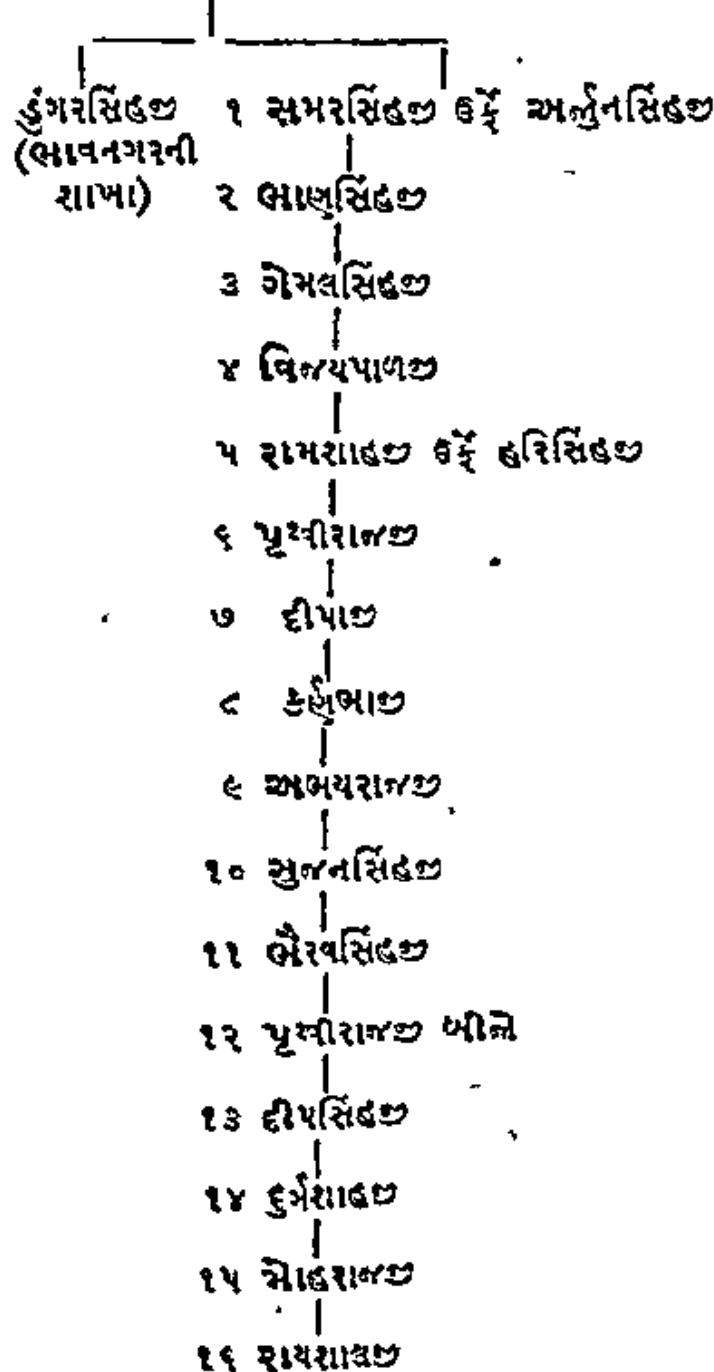 ડુંગરસિંહજી ૧ સમરસિંહજી ઉર્ફે અર્જુનસિંહજી
(ભાવનગરની
શાખા) ૨ ભાણસિંહજી
૩ ગેમલસિંહજી
૪ વિજયપાળજી
૫ રામશાહજી ઉર્ફે હરિસિંહજી
૬ પૃથ્વીરાજજી
૭ દીપાજી
૮ કર્ણભાજી
૯ અભયરાજજી
૧૦ સુજનસિંહજી
૧૧ ભૈરવસિંહજી
૧૨ પૃથ્વીરાજજી બીજો
૧૩ દીપસિંહજી
૧૪ દુર્ગશાહજી
૧૫ મોહરાજજી
૧૬ રાયશાલજી